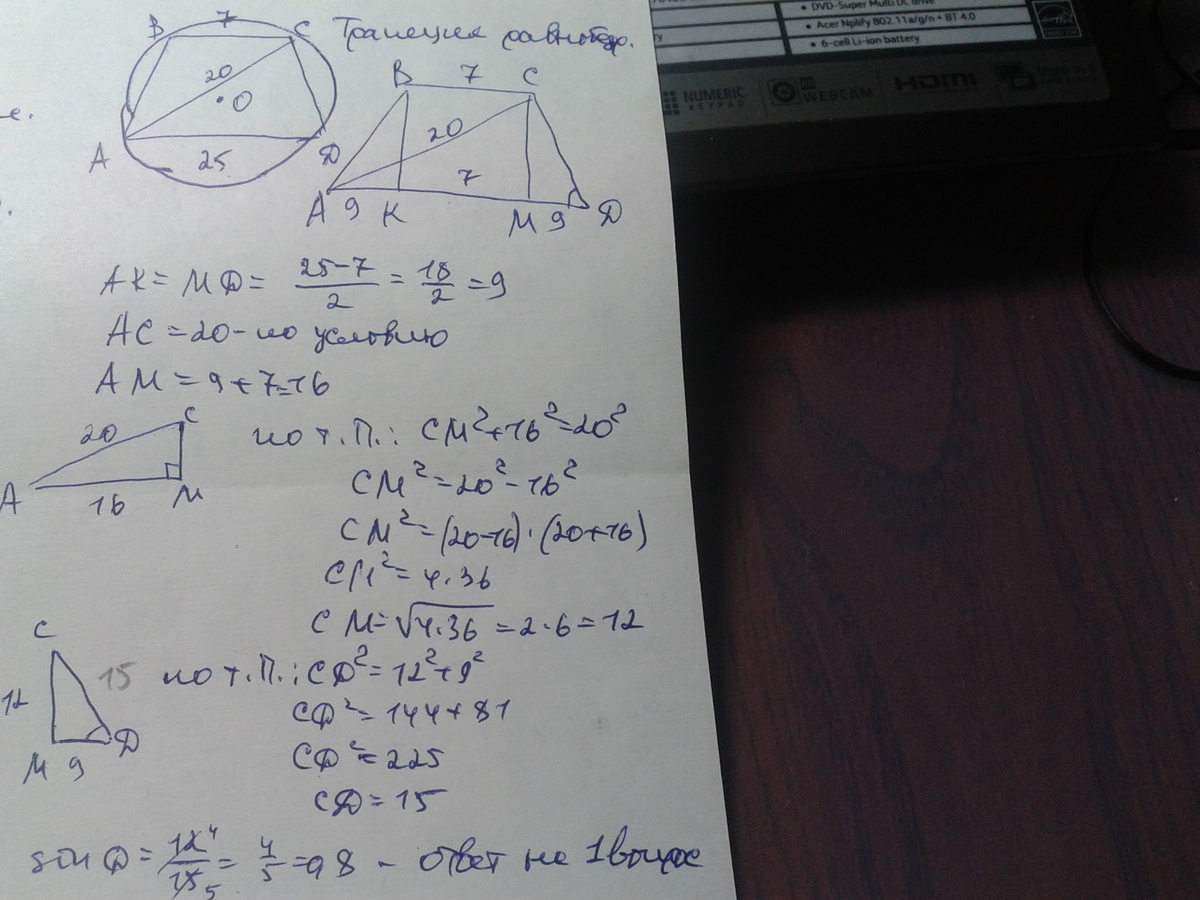 B 7 C
20
O
A 25 D
Трапеция равнобедр.
B 7 C
20
7
A 9 K M 9 D
е.
AK = MD = \frac{25-7}{2} = \frac{18}{2} = 9
AC = 20 - по условию
AM = 9 + 7 = 16
20 C
A 16 M
по т.П.: CM² + 16² = 20²
CM² = 20² - 16²
CM² = (20-16) · (20+16)
CM² = 4·36
CM = √4·36 = 2·6 = 12
C
12 15
M 9 D
по т.П.: CD² = 12² + 9²
CD² = 144 + 81
CD² = 225
CD = 15
sin D = \frac{12}{15} \frac{4}{5} = \frac{4}{5} = 0,8 - ответ на 1 вопрос
• DVD-Super Multi DL drive
• Acer Nplify 802.11a/g/n + BT 4.0
• 6-cell Li-ion battery
NUMERIC
KEYPAD
HD
WEBCAM
HDMI
Multi-in-1